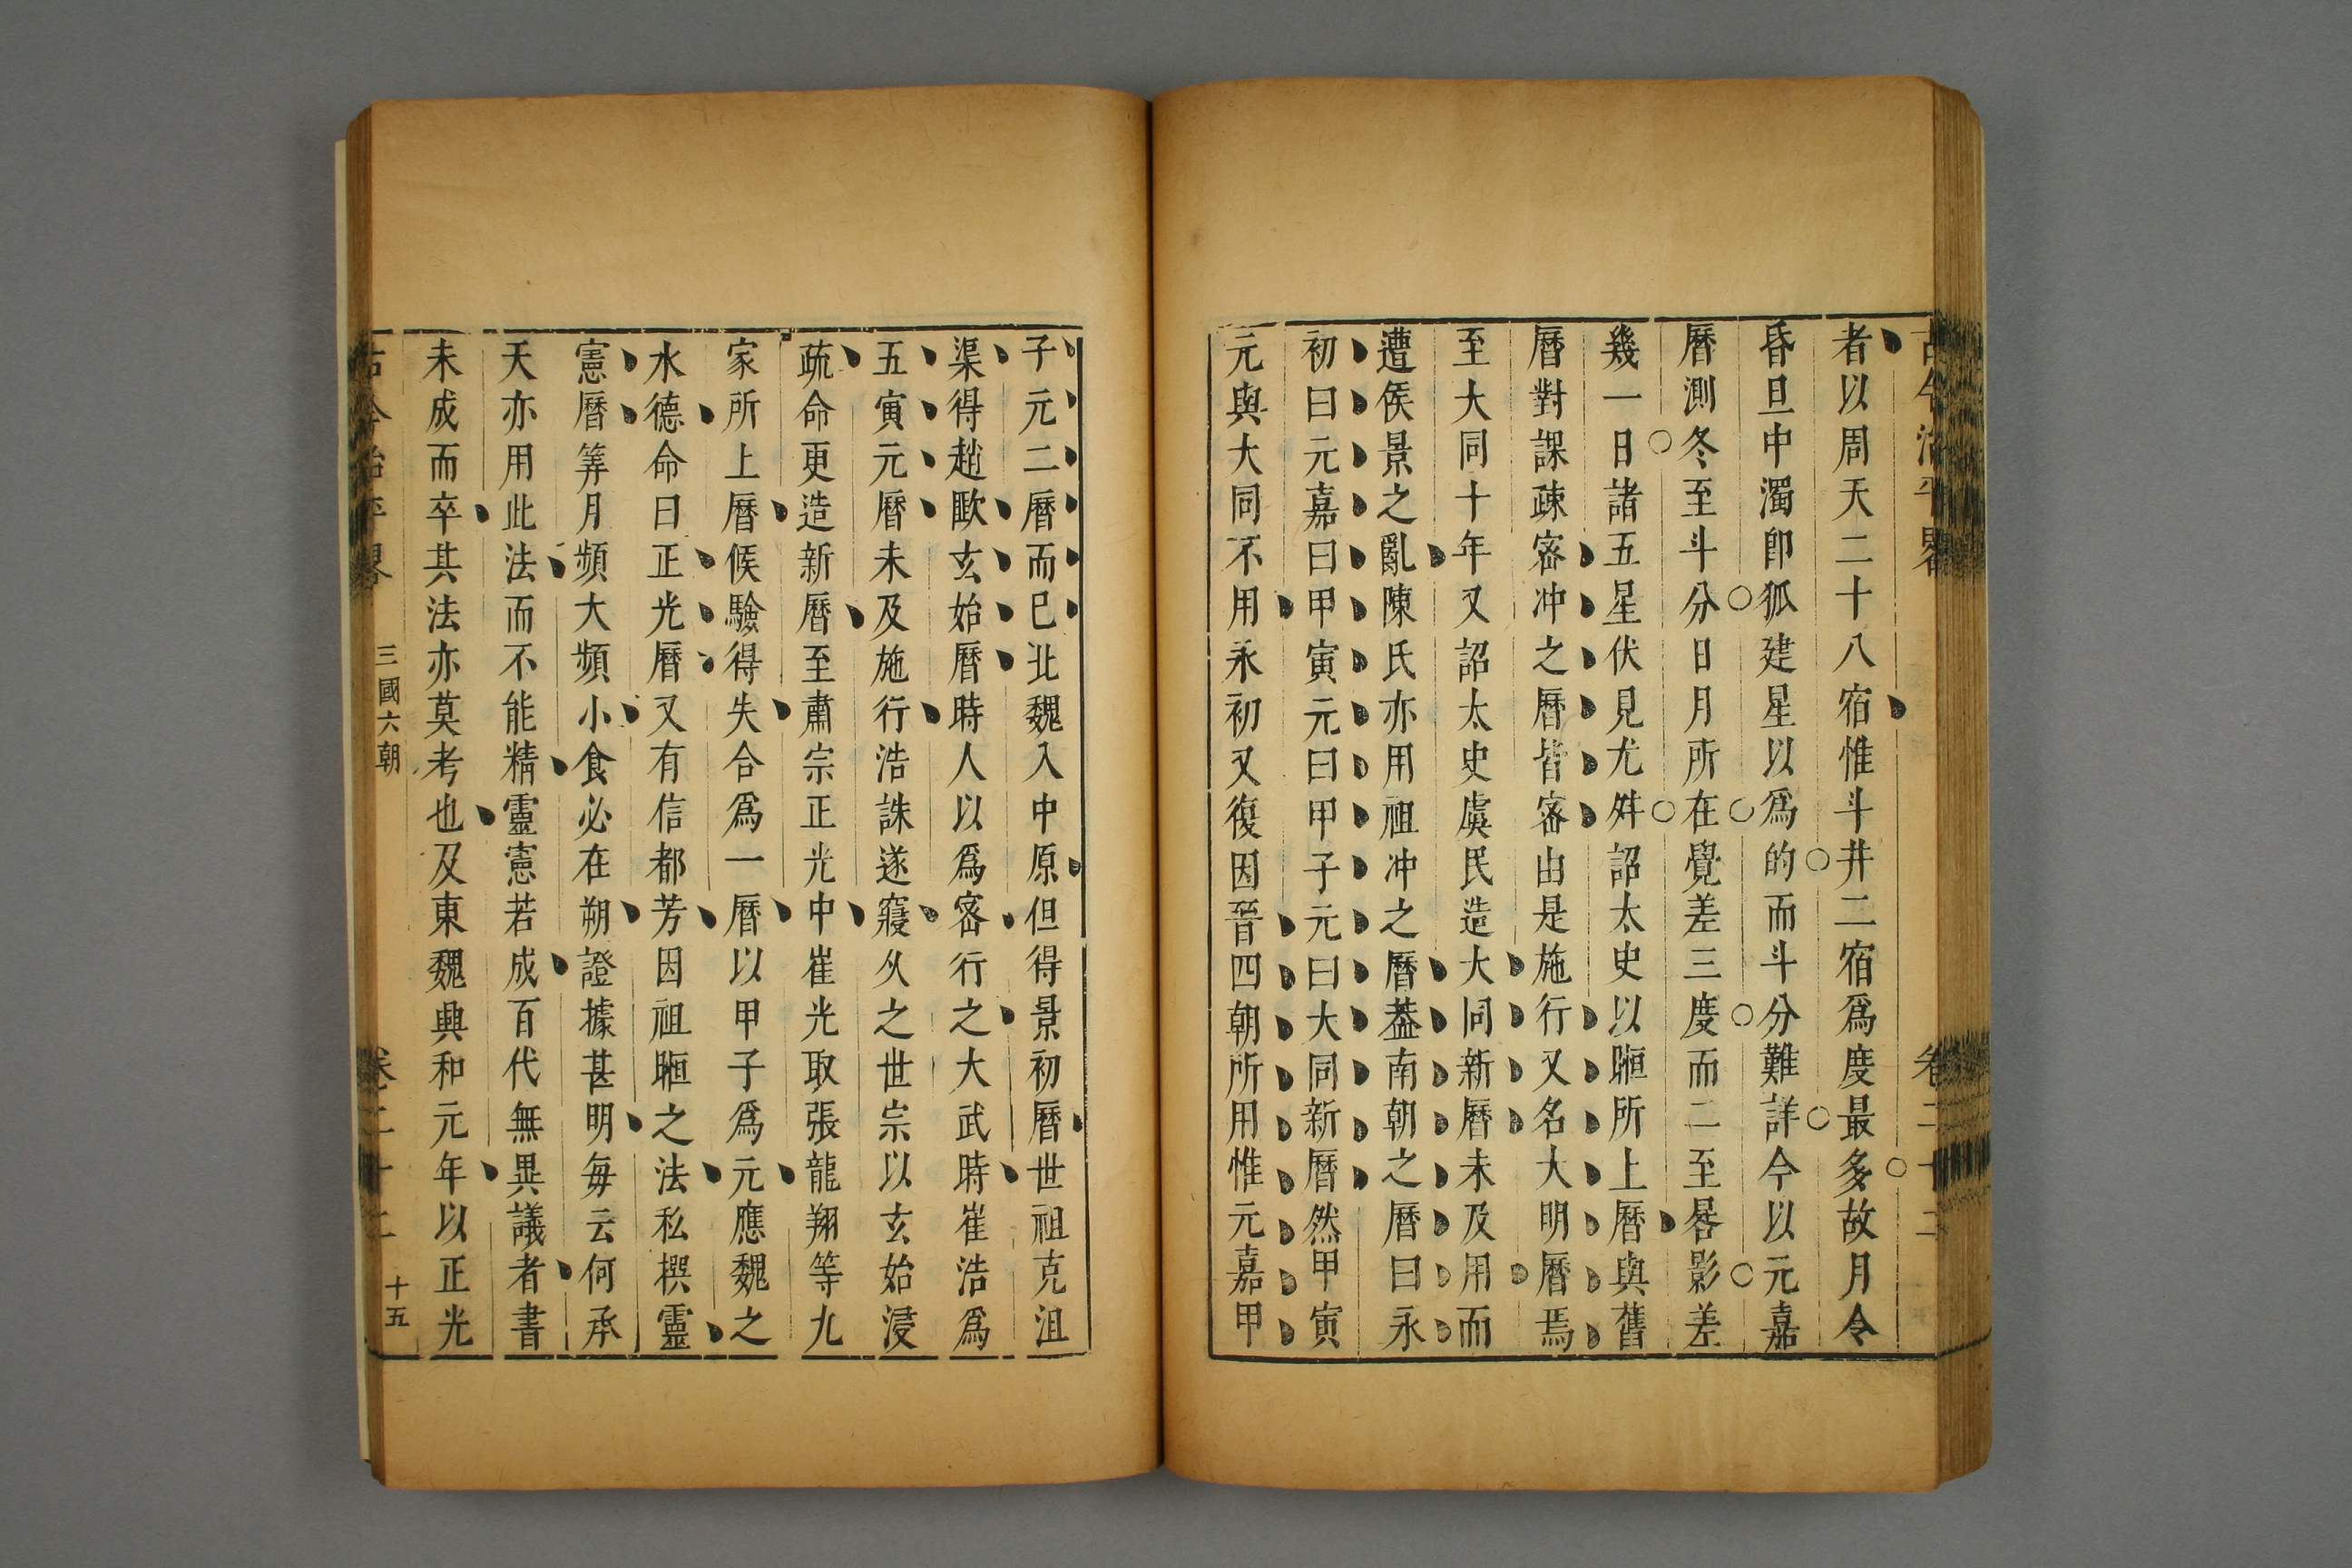 古今治平畧 卷二十二
者以周天二十八宿惟斗井二宿爲度最多故月令
昏旦中濁卽狐建星以爲的而斗分難詳今以元嘉
曆測冬至斗分日月所在覺差三度而二至晷影差
幾一日諸五星伏見尤舛詔太史以𣈶所上曆與舊
曆對課疎宻冲之曆皆宻由是施行又名大明曆焉
至大同十年又詔太史虞𠠇造大同新曆未及用而
遭侯景之亂陳氏亦用祖冲之曆葢南朝之曆曰永
初曰元嘉曰甲寅元曰甲子元曰大同新曆然甲寅
元與大同不用永初又復因晉四朝所用惟元嘉甲
子元二曆而巳北魏入中原但得景初曆世祖克沮
渠得趙𢾺玄始曆時人以爲宻行之大武時崔浩爲
五寅元曆未及施行浩誅遂寢久之世宗以玄始浸
疏命更造新曆至肅宗正光中崔光取張龍翔等九
家所上曆候驗得失合爲一曆以甲子爲元應魏之
水德命曰正光曆又有信都芳因祖𣈶之法私撰靈
憲曆筭月頻大頻小食必在朔證據甚明每云何承
天亦用此法而不能精靈憲若成百代無異議者書
未成而卒其法亦莫考也及東魏興和元年以正光
古今治平畧 三國六朝 卷二十二 十五